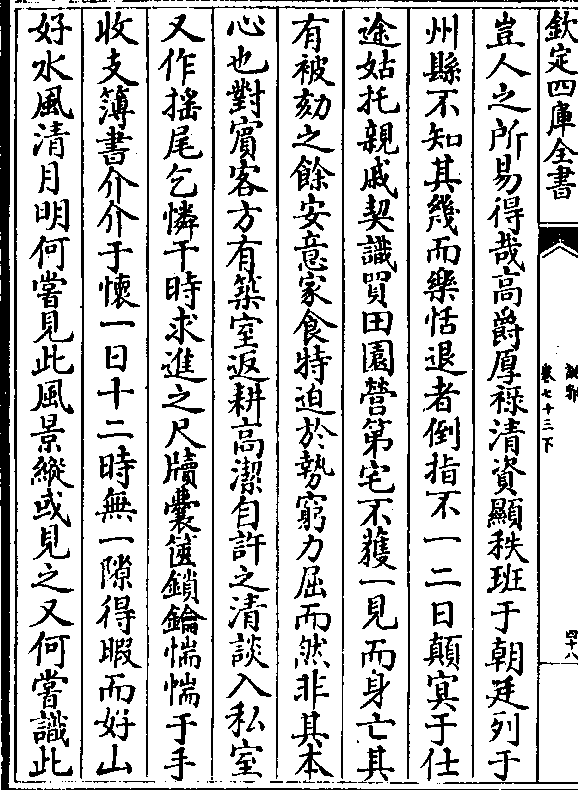 欽定四庫全書
說郛
卷七十三下
四十八
豈人之所易得哉高爵厚祿清資顯秩班于朝廷列于
州縣不知其幾而樂恬退者倒指不一二日顛冥于仕
途姑托親戚契識買田園營第宅不獲一見而身亡其
有被劾之餘安意家食特迫於勢窮力屈而然非其本
心也對賓客方有築室返耕高潔自許之清談入私室
又作揺尾乞憐干時求進之尺牘囊篋鎖鑰惴惴于手
收支簿書介介于懷一日十二時無一隙得暇而好山
好水風清月明何嘗見此風景縱或見之又何嘗識此